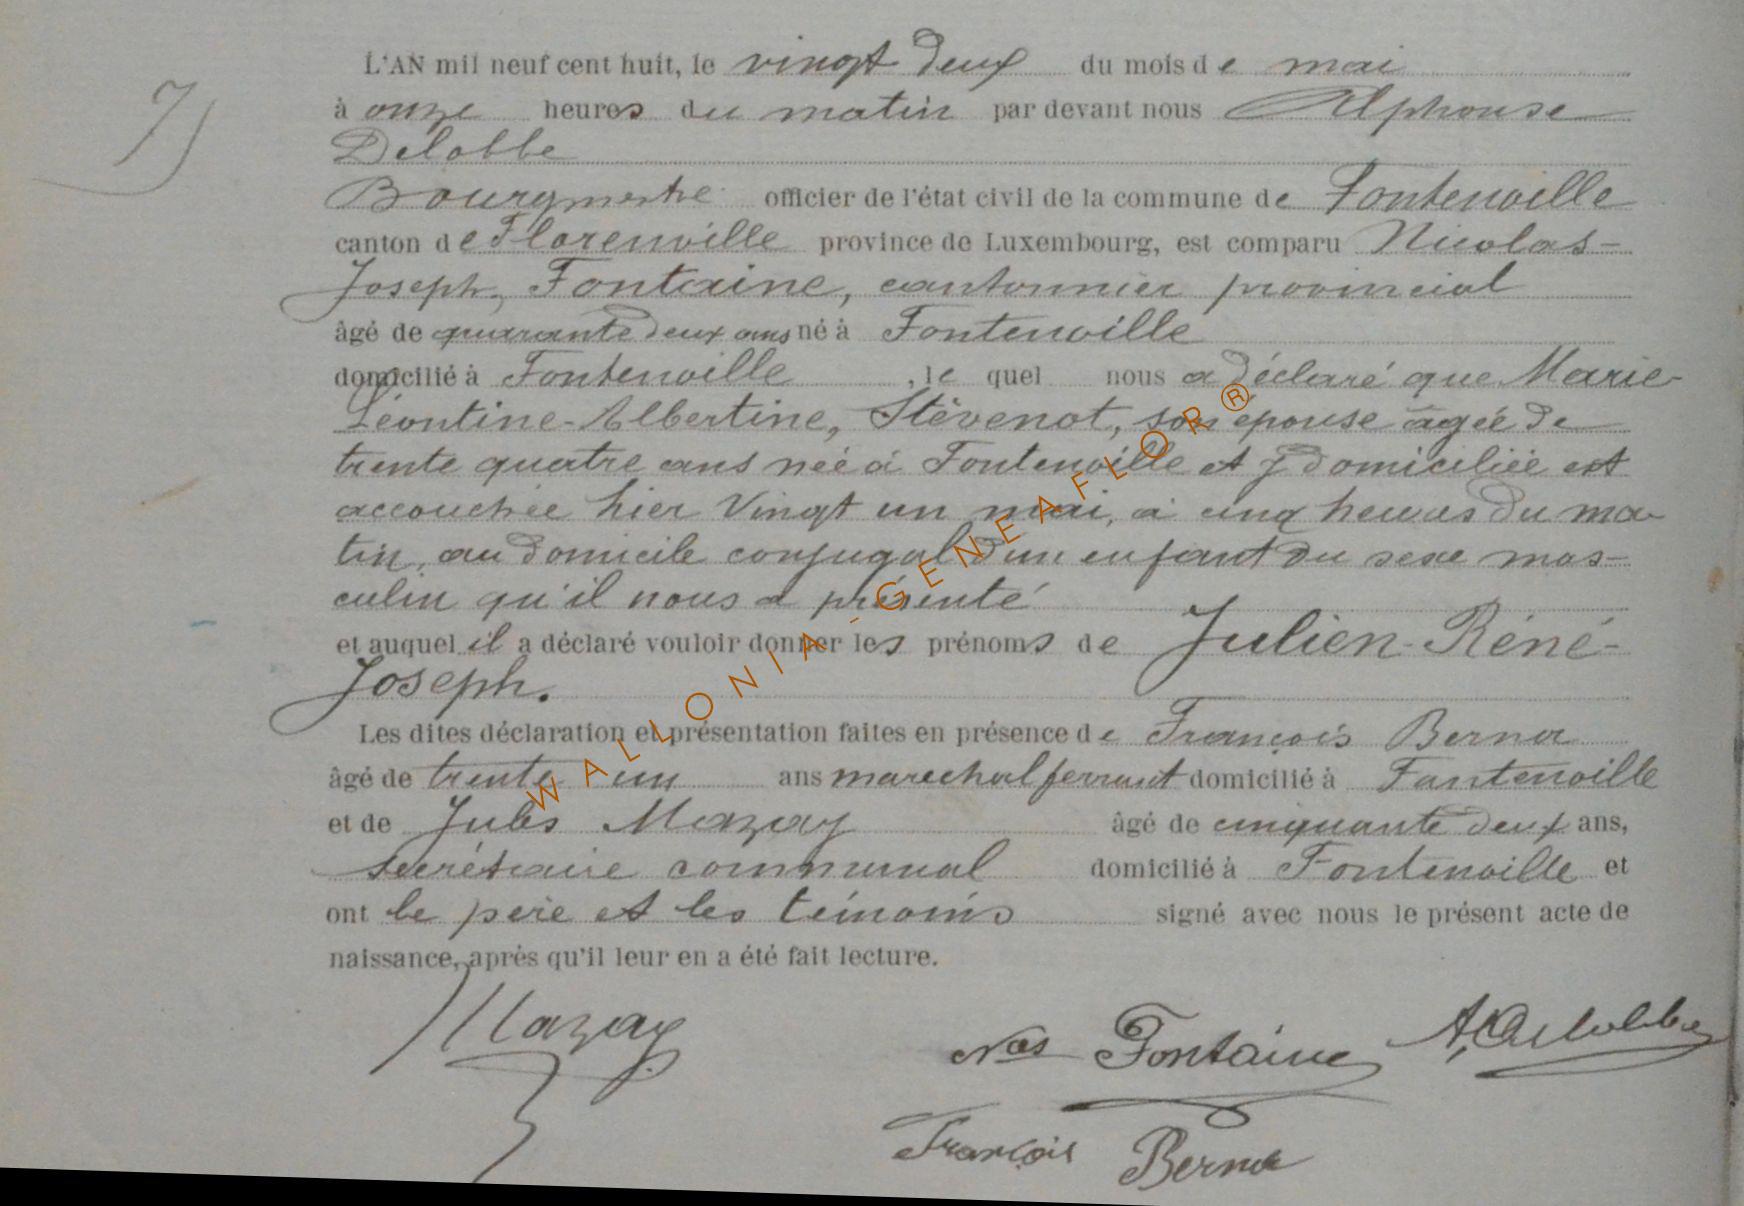 7
L'AN mil neuf cent huit, le vingt deux du mois de mai
à onze heures du matin par devant nous Alphonse
Delobbe
Bourgmestre officier de l'état civil de la commune de Fontenoille
canton de Florenville province de Luxembourg, est comparu Nicolas-
Joseph, Fontaine, cantonnier provincial
âgé de quarante deux ans né à Fontenoille
domicilié à Fontenoille, le quel nous a déclaré que Marie-
Léontine-Albertine, Stèvenot, son épouse âgée de
trente quatre ans née à Fontenoille et y domiciliée est
accouchée hier Vingt un mai, à cinq heures du ma-
tin, au domicile conjugal d'un enfant du sexe mas-
culin qu'il nous a présenté
et auquel il a déclaré vouloir donner les prénoms de Julien-Réné-
Joseph.
Les dites déclaration et présentation faites en présence de François Berna
âgé de trente un ans marechal ferrant domicilié à Fontenoille
et de Jules Mazay âgé de cinquante deux ans,
secrétaire communal domicilié à Fontenoille et
ont le père et les témoins signé avec nous le présent acte de
naissance, après qu'il leur en a été fait lecture.
Mazay
Nas Fontaine A, Delobbe
François Berna
WALLONIA-GENEAFLOR®